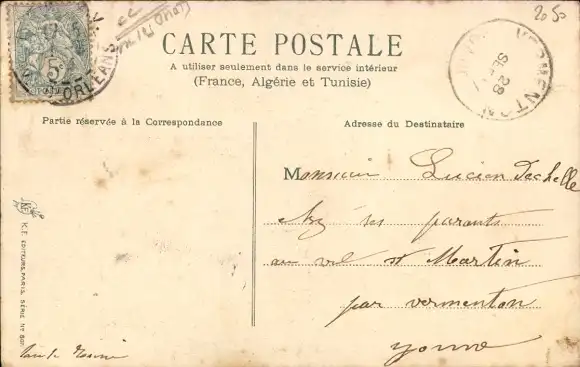 20 50
5c
ORLEANS
VERMENTON
28
CARTE POSTALE
A utiliser seulement dans le service intérieur
(France, Algérie et Tunisie)
Partie réservée à la Correspondance
Adresse du Destinataire
Monsieur Lucien Dechelle
chez ses parents
au val st Martin
par vermenton
yonne
K.F. EDITEURS, PARIS, SÉRIE Nº